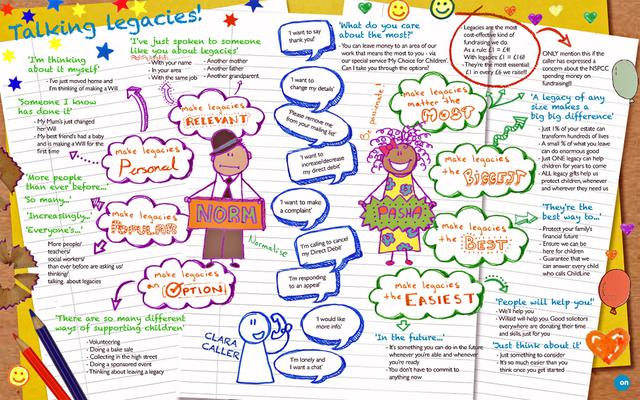 Talking legacies!
'I'm thinking
about it myself'
- I've just moved home and
I'm thinking of making a Will
'Someone I know
has done it'
- My Mum's just changed
her Will
- My best friend's had a baby
and is making a Will for the
first time
'More people
than ever before...'
'So many...'
'Increasingly...'
'Everyone's...'
More people/
teachers/
social workers/
than ever before are asking us/
thinking/
talking about legacies
'There are so many different
ways of supporting children'
- Volunteering
- Doing a bake sale
- Collecting in the high street
- Doing a sponsored event
- Thinking about leaving a legacy
'I've just spoken to someone
like you about legacies'
- With your name
- In your area
- With the same job
- Another mother
- Another father
- Another grandparent
make legacies
RELEVANT
make legacies
Personal
make legacies
POPULAR
make legacies
an OPTION!
NORM
Normalise
'I want to say
thank you!'
'I want to
change my details'
'Please remove me
from your mailing list'
'I want to
increase/decrease
my direct debit'
'I want to make
a complaint'
'I'm calling to cancel
my Direct Debit'
'I'm responding
to an appeal'
'I would like
more info'
'I'm lonely and
I want a chat'
CLARA
CALLER
'What do you care
about the most?'
- You can leave money to an area of our
work that means the most to you - via
our special service 'My Choice for Children'.
Can I take you through the options?
Be passionate!
PASHA
make legacies
matter the
MOST
make legacies
the BIGGEST
make legacies
the BEST
make legacies
the EASIEST
'In the future...'
- It's something you can do in the future
whenever you're able and whenever you're
ready
- You don't have to commit to
anything now
Legacies are the most
cost-effective kind of
fundraising we do.
As a rule £1 = £4
With legacies £1 = £16!
- They're the most essential:
£1 in every £6 we raise!!
ONLY mention this if the
caller has expressed a
concern about the NSPCC
spending money on
fundraising!!
'A legacy of any
size makes a
big big difference'
- Just 1% of your estate can
transform hundreds of lives
- A small % of what you leave
can do enormous good
- Just ONE legacy can help
children for years to come
- ALL legacy gifts help us
protect children, whenever
and wherever they need us
'They're the
best way to...'
- Protect your family's
financial future
- Ensure we can be
here for children
- Guarantee that we
can answer every child
who calls ChildLine
'People will help you!'
- We'll help you
- Willaid will help you. Good solicitors
everywhere are donating their time
and skills, just for you
'Just think about it'
- Just something to consider
- It's so much easier than you
think once you get started
on